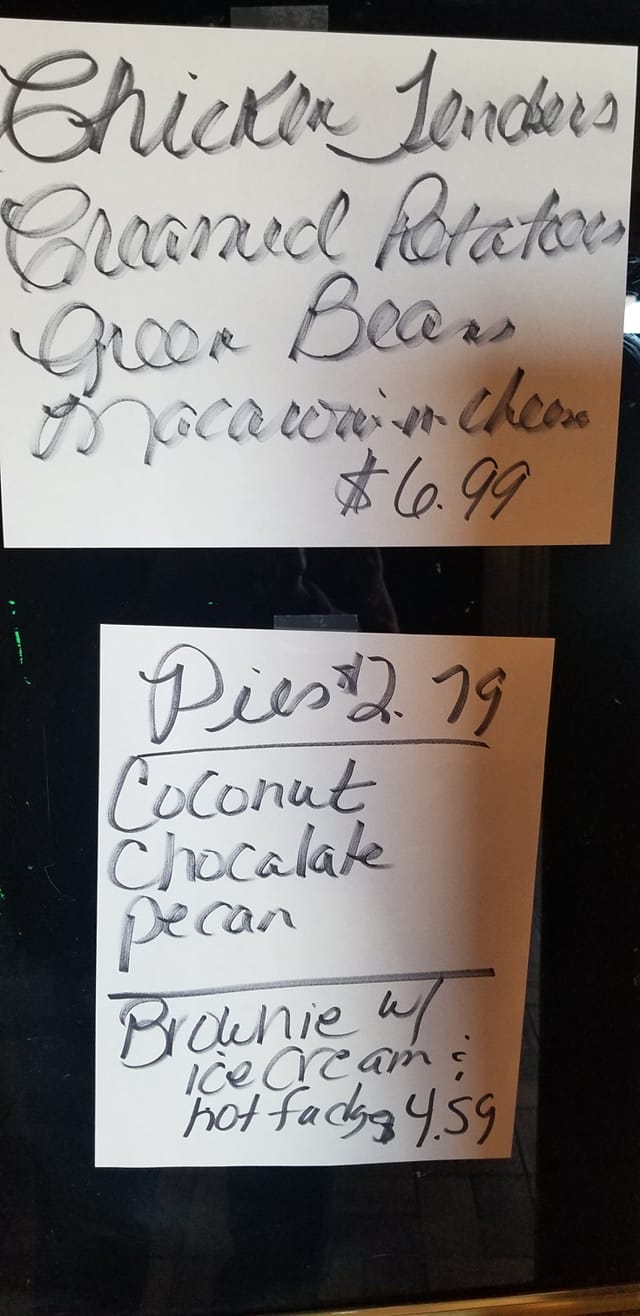 Chicken Tenders
Creamed Potatoes
Green Beans
Macaroni n Cheese
$6.99
Pies $2.79
Coconut
Chocalate
pecan
Brownie w/
ice cream &
hot fudge 4.59